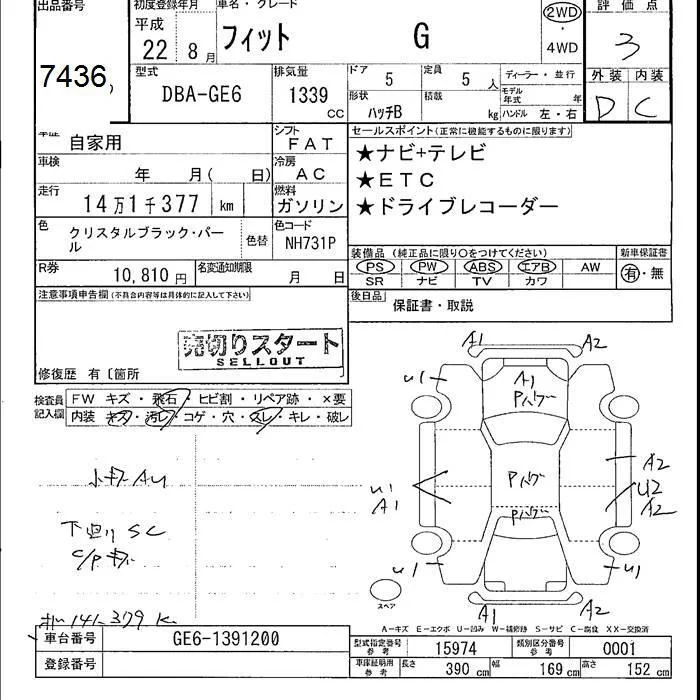 出品番号
7436
初度登録年月
平成
22年 8月
車名・グレード
フィット G
2WD
・
4WD
評価点
3
外装 内装
D C
型式
DBA-GE6
排気量
1339 CC
ドア 5
定員 5人
形状 ハッチB
積載 kg
ディーラー・並行
モデル年式 年
ハンドル 左・右
車歴 自家用
シフト FAT
車検 年 月( 日)
冷房 AC
走行 14万1千377 km
燃料 ガソリン
色 クリスタルブラック・パール
色替
色コード NH731P
R券 10,810円
名変通知期限 月 日
セールスポイント(正常に機能するものに限ります)
★ナビ+テレビ
★ETC
★ドライブレコーダー
装備品 (純正品に限り○をつけてください)
新車保証書
PS PW ABS エアB AW
SR ナビ TV カワ
有・無
後日品 保証書・取説
注意事項申告欄(不具合内容等は具体的に記入して下さい)
売切りスタート
SELLOUT
修復歴 有〔箇所
検査員記入欄
FW キズ・飛石・ヒビ割・リペア跡・×要
内装 キズ・汚レ・コゲ・穴・スレ・キレ・破レ
小キズ AU
下廻り SC
C/P キズ
141,379 K
A1 A2
U1
A1
Pハゲ
Pハゲ
Pハゲ
U1
A1
A2
U2
A2
U1 U1
A1 A2
スペア
A-キズ E-エクボ U-凹み W-補修跡 S-サビ C-腐食 XX-交換済
車台番号 GE6-1391200
登録番号
型式指定番号 参考 15974
類別区分番号 参考 0001
車庫証明用 参考
長さ 390 cm
幅 169 cm
高さ 152 cm